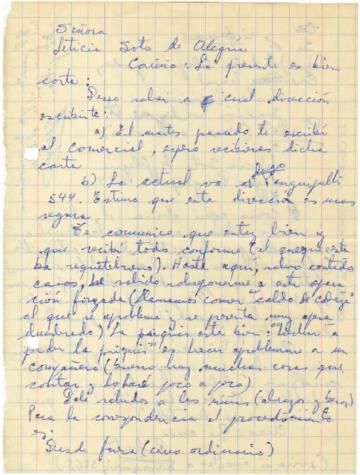 Señora
Leticia Soto de Alegría
Cariño: La presente es bien
corta:
Deseo saber a cual dirección
escribirte:
a) El martes pasado te escribí
al comercial, espero recibieras dicha
carta
b) La actual va a Lago Panguipulli
544. Estimo que esta dirección es mas
segura.
Te comunico que estoy bien y
que recibí todo conforme (el queque esta
ba requetebueno). Hasta aquí, salvo contados
casos, he salido adaptarme a esta
forzada (llamamos comer caldo de cabeza
al que se apoblema se presta muy
La psiquis está bien: "Volver a
perder la es hacer apoblemarse a un
compañero (bueno hay muchas cosas que
contar y lo haré poco a poco)
Dale saludos a los niños (abrazos y besos)
Para la correspondencia el procedimiento
es:
Desde fuera (correo ordinario)